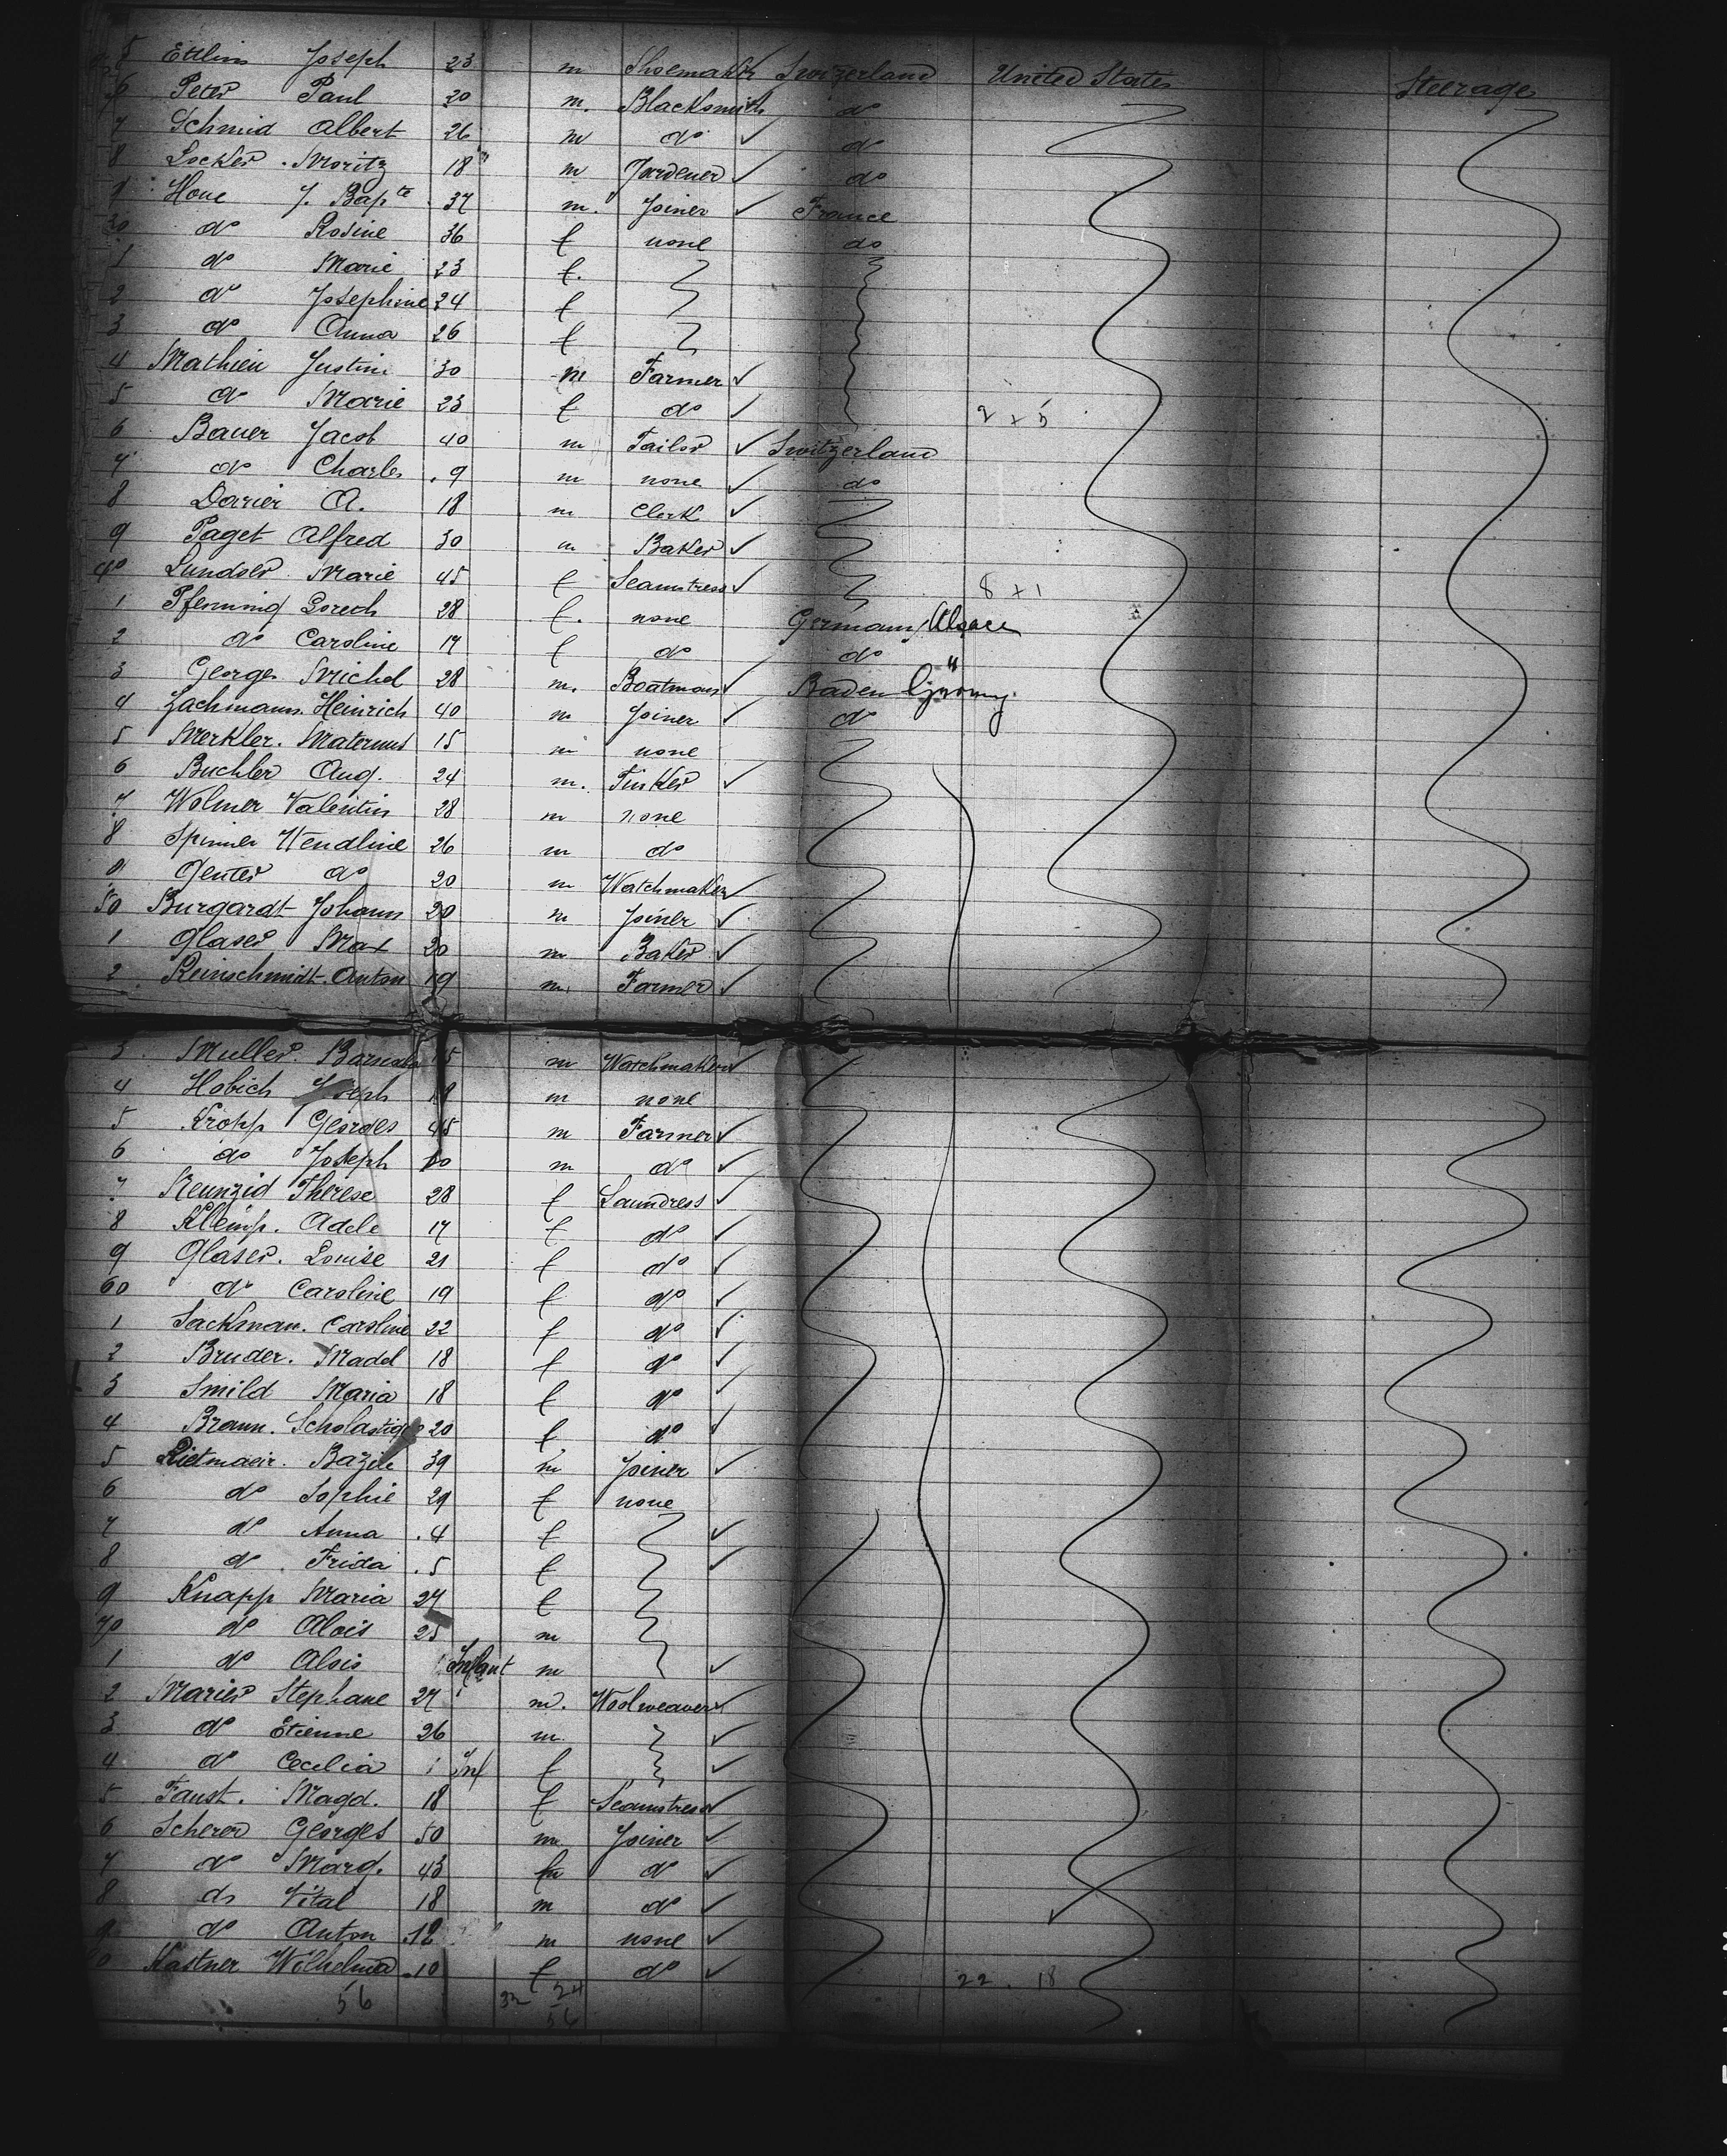 5 Ettlin Joseph 23 m Shoemaker Switzerland United States Steerage
6 Peter Paul 20 m. Blacksmith do
7 Schmid Albert 26 m do do
8 Locker Moritz 18 m Gardener do
9 Houe J. Bapte 37 m. Joiner France
30 do Rosine 36 f none do
1 do Marie 23 f.
2 do Josephine 24 f
3 do Anna 26 f
4 Mathieu Justin 30 m Farmer
5 do Marie 23 f do 2 + 5
6 Bauer Jacob 40 m Tailor Switzerland
7 do Charles 9 m none do
8 Darier A. 18 m Clerk
9 Paget Alfred 30 m Baker
40 Marie 45 f Seamstress 8 + 1
1 Pfenning 28 f. none Germany Alsace
2 do Caroline 17 f do do "
3 George Michel 28 m. Boatman Baden Germany
4 Zachmann Heinrich 40 m Joiner do
5 Merkler. Maternus 15 m none
6 Buchler Aug. 24 m. Tinker
7 Wolmer Valentin 28 m none
8 Spinner Wendline 26 m do
9 Genter do 20 m Watchmaker
50 Burgardt Johann 20 m Joiner
1 Glaser Max 20 m Baker
2 Reinschmidt. Anton 19 m. Farmer
3 Muller. m Watchmaker
4 Hobich Joseph m none
5 Kropp Georges 45 m Farmer
6 do Joseph m do
7 Neunzid Therese 28 f Laundress
8 Adele 17 f do
9 Glaser. Louise 21 f do
60 do Caroline 19 f do
1 Sackman. Caroline 22 f do
2 Bruder. Madel 18 f do
3 Smild Maria 18 f do
4 Braun. Scholastiqe 20 f do
5 Rietmaeir. Bazile 39 m Joiner
6 do Sophie 29 f none
7 do Anna .4 f
8 do Frida .5 f
9 Knapp Maria 27 f
70 do Alois 25 m
1 do Alois Infant m
2 Marier Stephane 27 m. Woolweaver
3 do Etienne 26 m.
4 do Cecelia Inf f
5 Faust. Magd. 18 f Seamstress
6 Scherer Georges 50 m Joiner
7 do Marg. 43 do
8 do Vital 18 m do
9 do Anton 12 m none
0 Kastner Wilhelma 10 f do
56 32 24 22 . 18
56